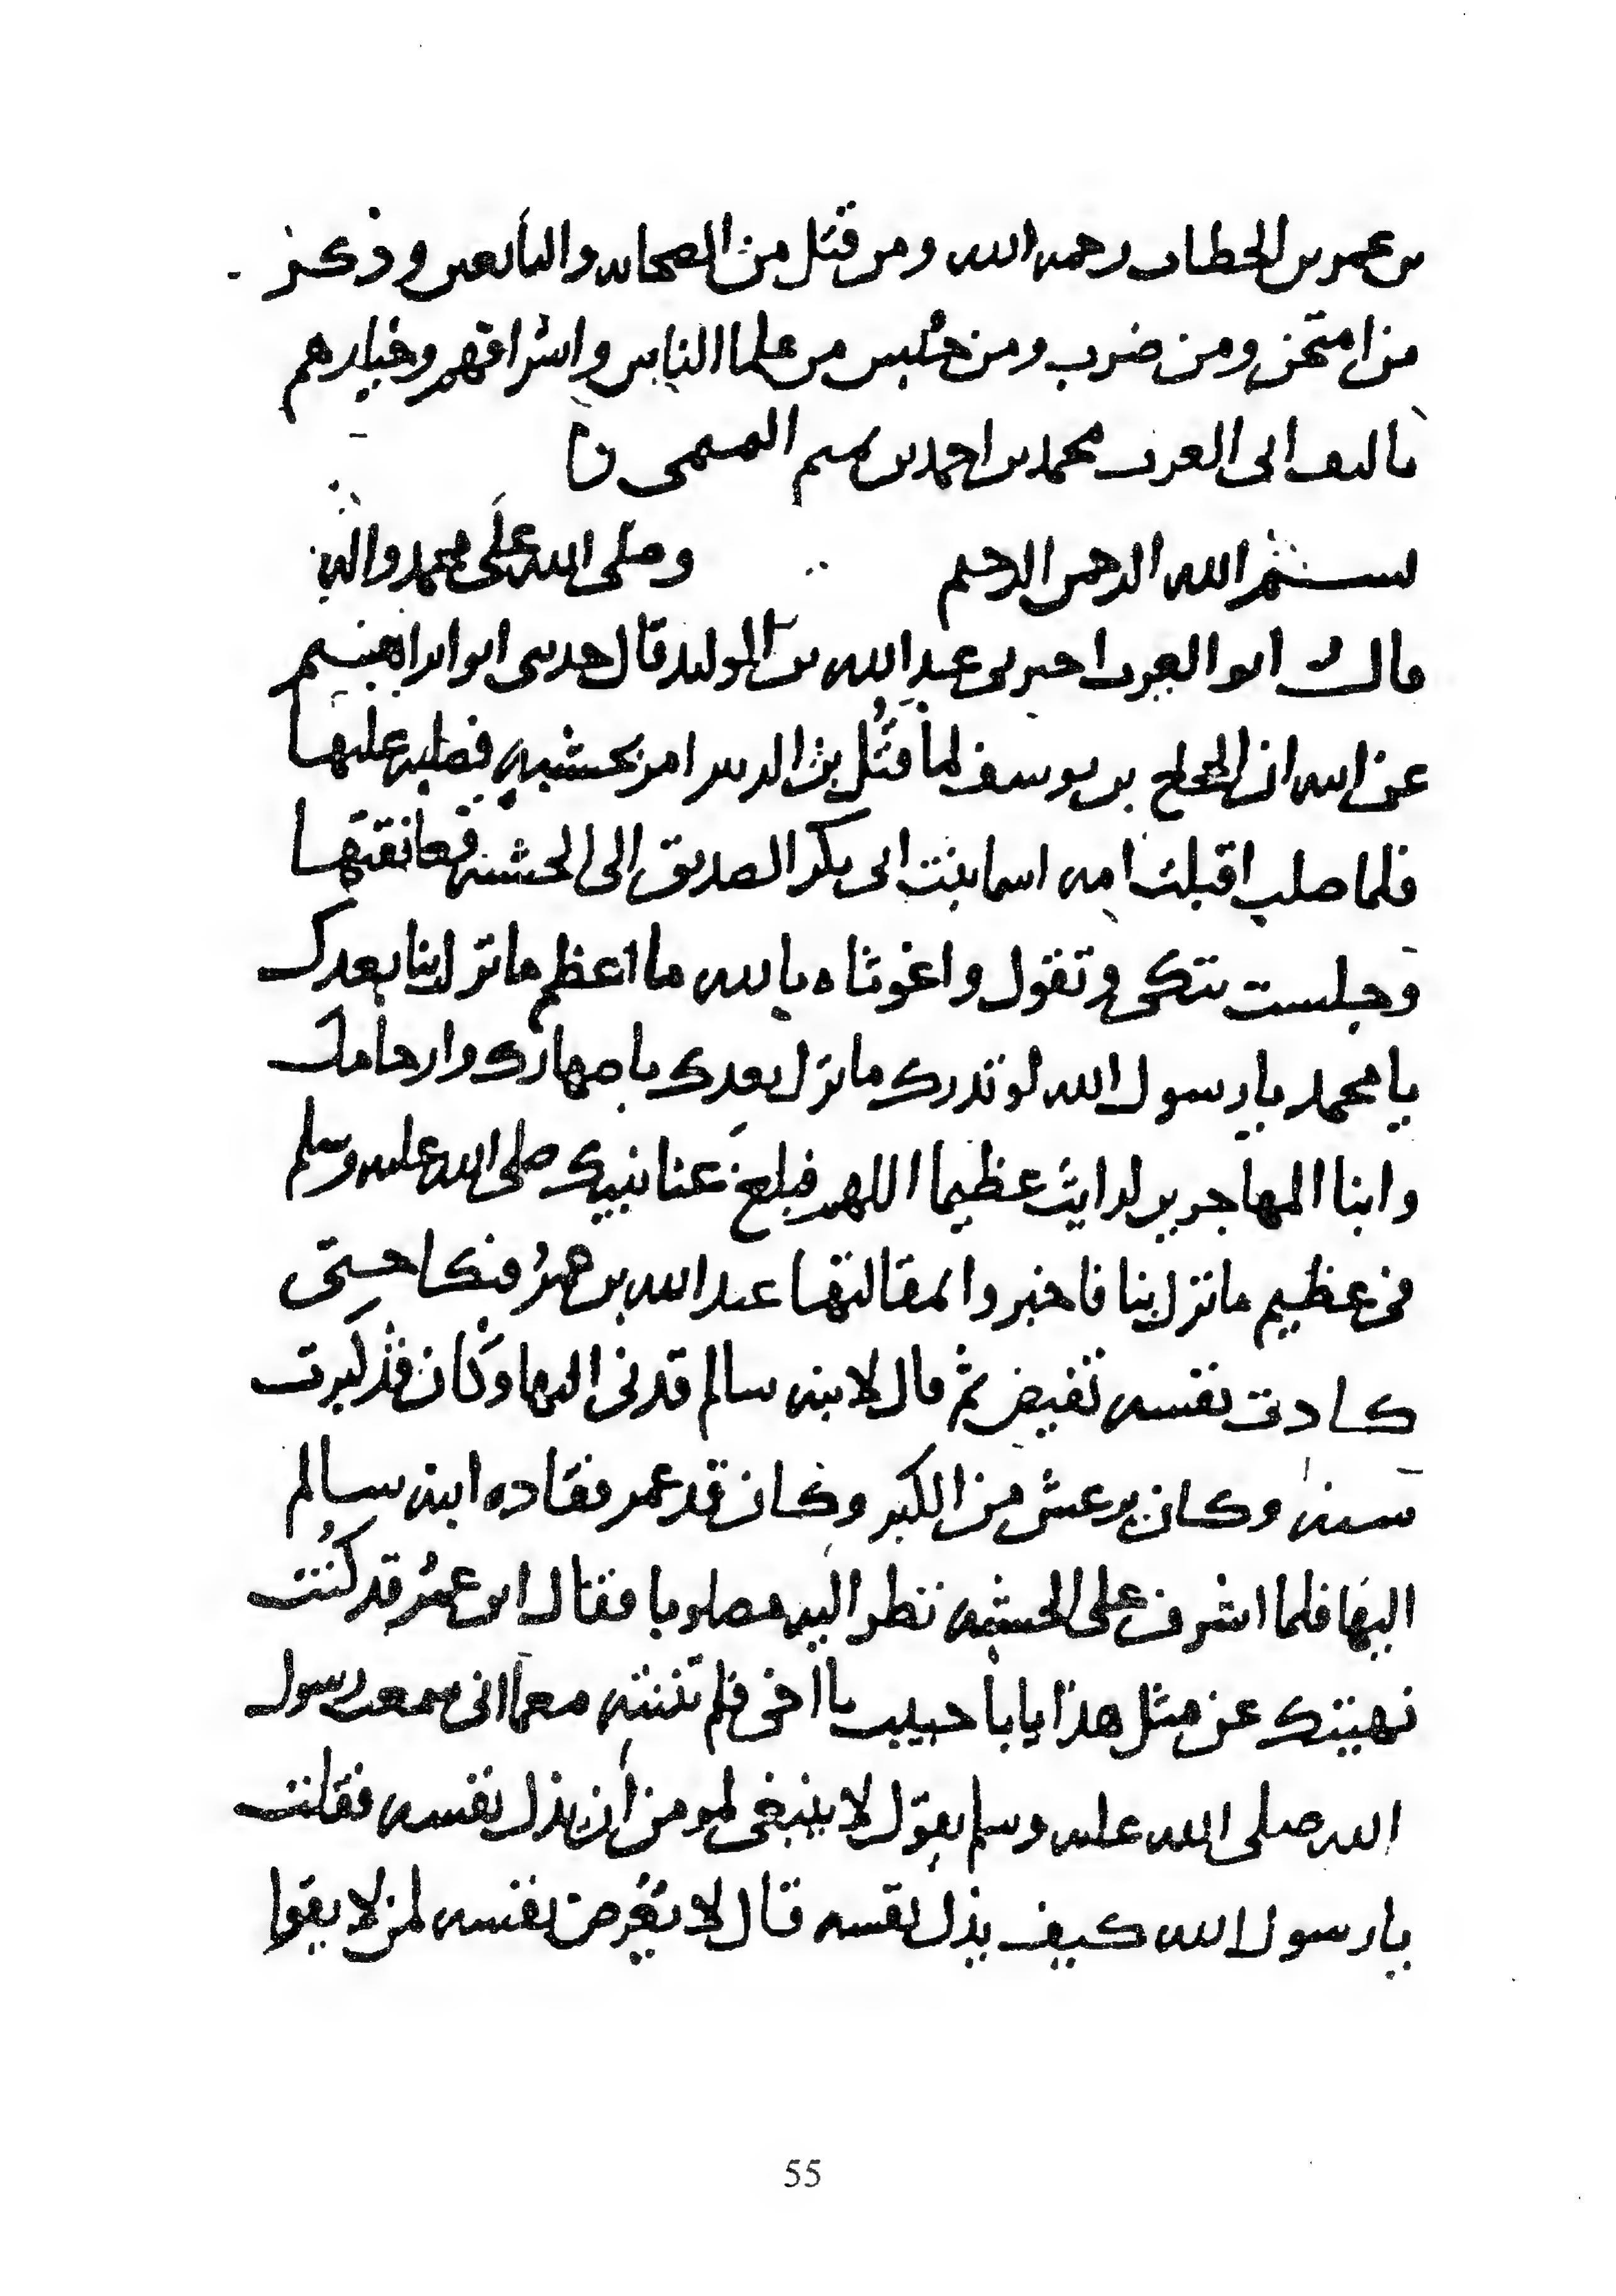 بن عمر بن الخطاب رحمه الله ومن قتل من الصحابه والتابعين وذكر
من امتحن ومن ضرب ومن حبس من علما الناس واشرافهم وخيارهم
تاليف ابى العرب محمد بن احمد بن تميم التميمى
بسم الله الرحمن الرحيم وصلى الله على محمد واله
قال ابو العرب اخبرنى عبد الله بن الوليد قال حدثنى ابو ابراهيم
عن ابيه ان الحجاج بن يوسف لما قتل بن الزبير امر بخشبه فصلبه عليها
فلما صلب اقبلت امه اسما بنت ابى بكر الصديق الى الخشبه فعانقتها
وجلست تبكى وتقول واغوثاه يالله ما اعظم ما نزل بنا بعدك
يا محمد يا رسول الله لو تدرك ما نزل بعدك باصهارك وارحامك
وابنا المهاجرين لرايت عظيما اللهم فبلغ عنا نبيك صلى الله عليه وسلم
فى عظيم ما نزل بنا فاخبروا بمقالتها عبد الله بن عمر فبكا حتى
كادت نفسه تفيض ثم قال لابنه سالم قدنى اليها وكان قد كبرت
سنه وكان يرعش من الكبر وكان قد عمر فقاده ابنه سالم
اليها فلما اشرف على الخشبه نظر اليه مصلوبا فقال ابن عمر قد كنت
نهيتك عن مثل هذا يابا حبيب يا اخى فلم تنته مع انى سمعت رسول
الله صلى الله عليه وسلم يقول لا ينبغى لمومن ان يذل نفسه فقلت
يا رسول الله كيف يذل نفسه قال لا يعرض نفسه لمن لا يقوا
55